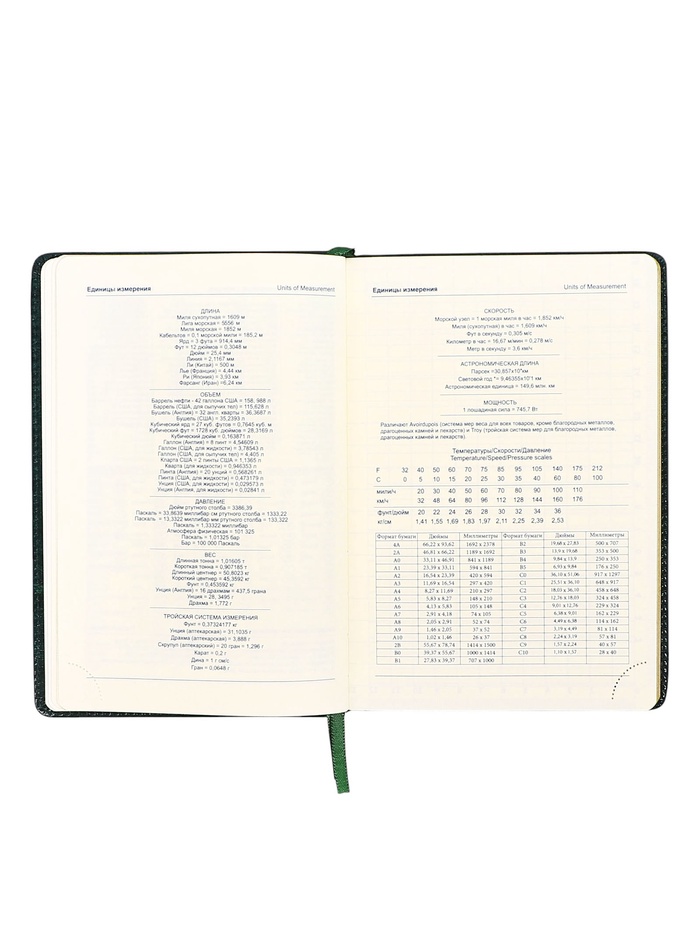 Единицы измерения
Units of Measurement
ДЛИНА
Миля сухопутная = 1609 м
Лига морская = 5556 м
Миля морская = 1852 м
Кабельтов = 0,1 морской мили = 185,2 м
Ярд = 3 фута = 914,4 мм
Фут = 12 дюймов = 0,3048 м
Дюйм = 25,4 мм
Линия = 2,1167 мм
Ли (Китай) = 500 м
Лье (Франция) = 4,44 км
Ри (Япония) = 3,93 км
Фарсанг (Иран) =6,24 км
ОБЪЕМ
Баррель нефти - 42 галлона США = 158, 988 л
Баррель (США, для сыпучих тел) = 115,628 л
Бушель (Англия) = 32 англ. кварты = 36,3687 л
Бушель (США) = 35,2393 л
Кубический ярд = 27 куб. футов = 0,7645 куб. м
Кубический фут = 1728 куб. дюймов = 28,3169 л
Кубический дюйм = 0,163871 л
Галлон (Англия) = 8 пинт = 4,54609 л
Галлон (США, для жидкости) = 3,78543 л
Галлон (США, для сыпучих тел) = 4,405 л
Кварта США = 2 пинты США = 1,1365 л
Кварта (для жидкости) = 0,946353 л
Пинта (Англия) = 20 унций = 0,568261 л
Пинта (США, для жидкости) = 0,473179 л
Унция (США, для жидкости) = 0,029573 л
Унция (Англия, для жидкости) = 0,02841 л
ДАВЛЕНИЕ
Дюйм ртутного столба = 3386,39
Паскаль = 33,8639 миллибар см ртутного столба = 1333,22
Паскаль = 13,3322 миллибар мм ртутного столба = 133,322
Паскаль = 1,33322 миллибар
Атмосфера физическая = 101 325
Паскаль = 1,01325 бар
Бар = 100 000 Паскаль
ВЕС
Длинная тонна = 1,01605 т
Короткая тонна = 0,907185 т
Длинный центнер = 50,8023 кг
Короткий центнер = 45,3592 кг
Фунт = 0,453592 кг
Унция (Англия) = 16 драхмам = 437,5 грана
Унция = 28, 3495 г
Драхма = 1,772 г
ТРОЙСКАЯ СИСТЕМА ИЗМЕРЕНИЯ
Фунт = 0,37324177 кг
Унция (аптекарская) = 31,1035 г
Драхма (аптекарская) = 3,888 г
Скрупул (аптекарский) = 20 гран = 1,296 г
Карат = 0,2 г
Дина = 1 г см/с
Гран = 0,0648 г
Единицы измерения
Units of Measurement
СКОРОСТЬ
Морской узел = 1 морская миля в час = 1,852 км/ч
Миля (сухопутная) в час = 1,609 км/ч
Фут в секунду = 0,305 м/с
Километр в час = 16,67 м/мин = 0,278 м/с
Метр в секунду = 3,6 км/ч
АСТРОНОМИЧЕСКАЯ ДЛИНА
Парсек =30,857x10¹²км
Световой год = 9,46355x10¹²км
Астрономическая единица = 149,6 млн. км
МОЩНОСТЬ
1 лошадиная сила = 745,7 Вт
Различают Avoirdupois (система мер веса для всех товаров, кроме благородных металлов,
драгоценных камней и лекарств) и Troy (тройская система мер для благородных металлов,
драгоценных камней и лекарств)
Температуры/Скорости/Давление
Temperature/Speed/Pressure scales
F 32 40 50 60 70 75 85 95 105 140 175 212
C 0 5 10 15 20 25 30 35 40 60 80 100
мили/ч 20 30 40 50 60 70 80 90 100 110
км/ч 32 48 64 80 96 112 128 144 160 176
фунт/дюйм 20 22 24 26 28 30 32 34 36
кг/см 1,41 1,55 1,69 1,83 1,97 2,11 2,25 2,39 2,53
Формат бумаги Дюймы Миллиметры Формат бумаги Дюймы Миллиметры
4A 66,22 x 93,62 1692 x 2378 B2 19,68 x 27,83 500 x 707
2A 46,81 x 66,22 1189 x 1692 B3 13,9 x 19,68 353 x 500
A0 33,11 x 46,91 841 x 1189 B4 9,84 x 13,9 250 x 353
A1 23,39 x 33,11 594 x 841 B5 6,93 x 9,84 176 x 250
A2 16,54 x 23,39 420 x 594 C0 36,10 x 51,06 917 x 1297
A3 11,69 x 16,54 297 x 420 C1 25,51 x 36,10 648 x 917
A4 8,27 x 11,69 210 x 297 C2 18,03 x 36,10 458 x 648
A5 5,83 x 8,27 148 x 210 C3 12,76 x 18,03 324 x 458
A6 4,13 x 5,83 105 x 148 C4 9,01 x 12,76 229 x 324
A7 2,91 x 4,18 74 x 105 C5 6,38 x 9,01 162 x 229
A8 2,05 x 2,91 52 x 74 C6 4,49 x 6,38 114 x 162
A9 1,46 x 2,05 37 x 52 C7 3,19 x 4,49 81 x 114
A10 1,02 x 1,46 26 x 37 C8 2,24 x 3,19 57 x 81
2B 55,67 x 78,74 1414 x 1500 C9 1,57 x 2,24 40 x 57
B0 39,37 x 55,67 1000 x 1414 C10 1,10 x 1,57 28 x 40
B1 27,83 x 39,37 707 x 1000